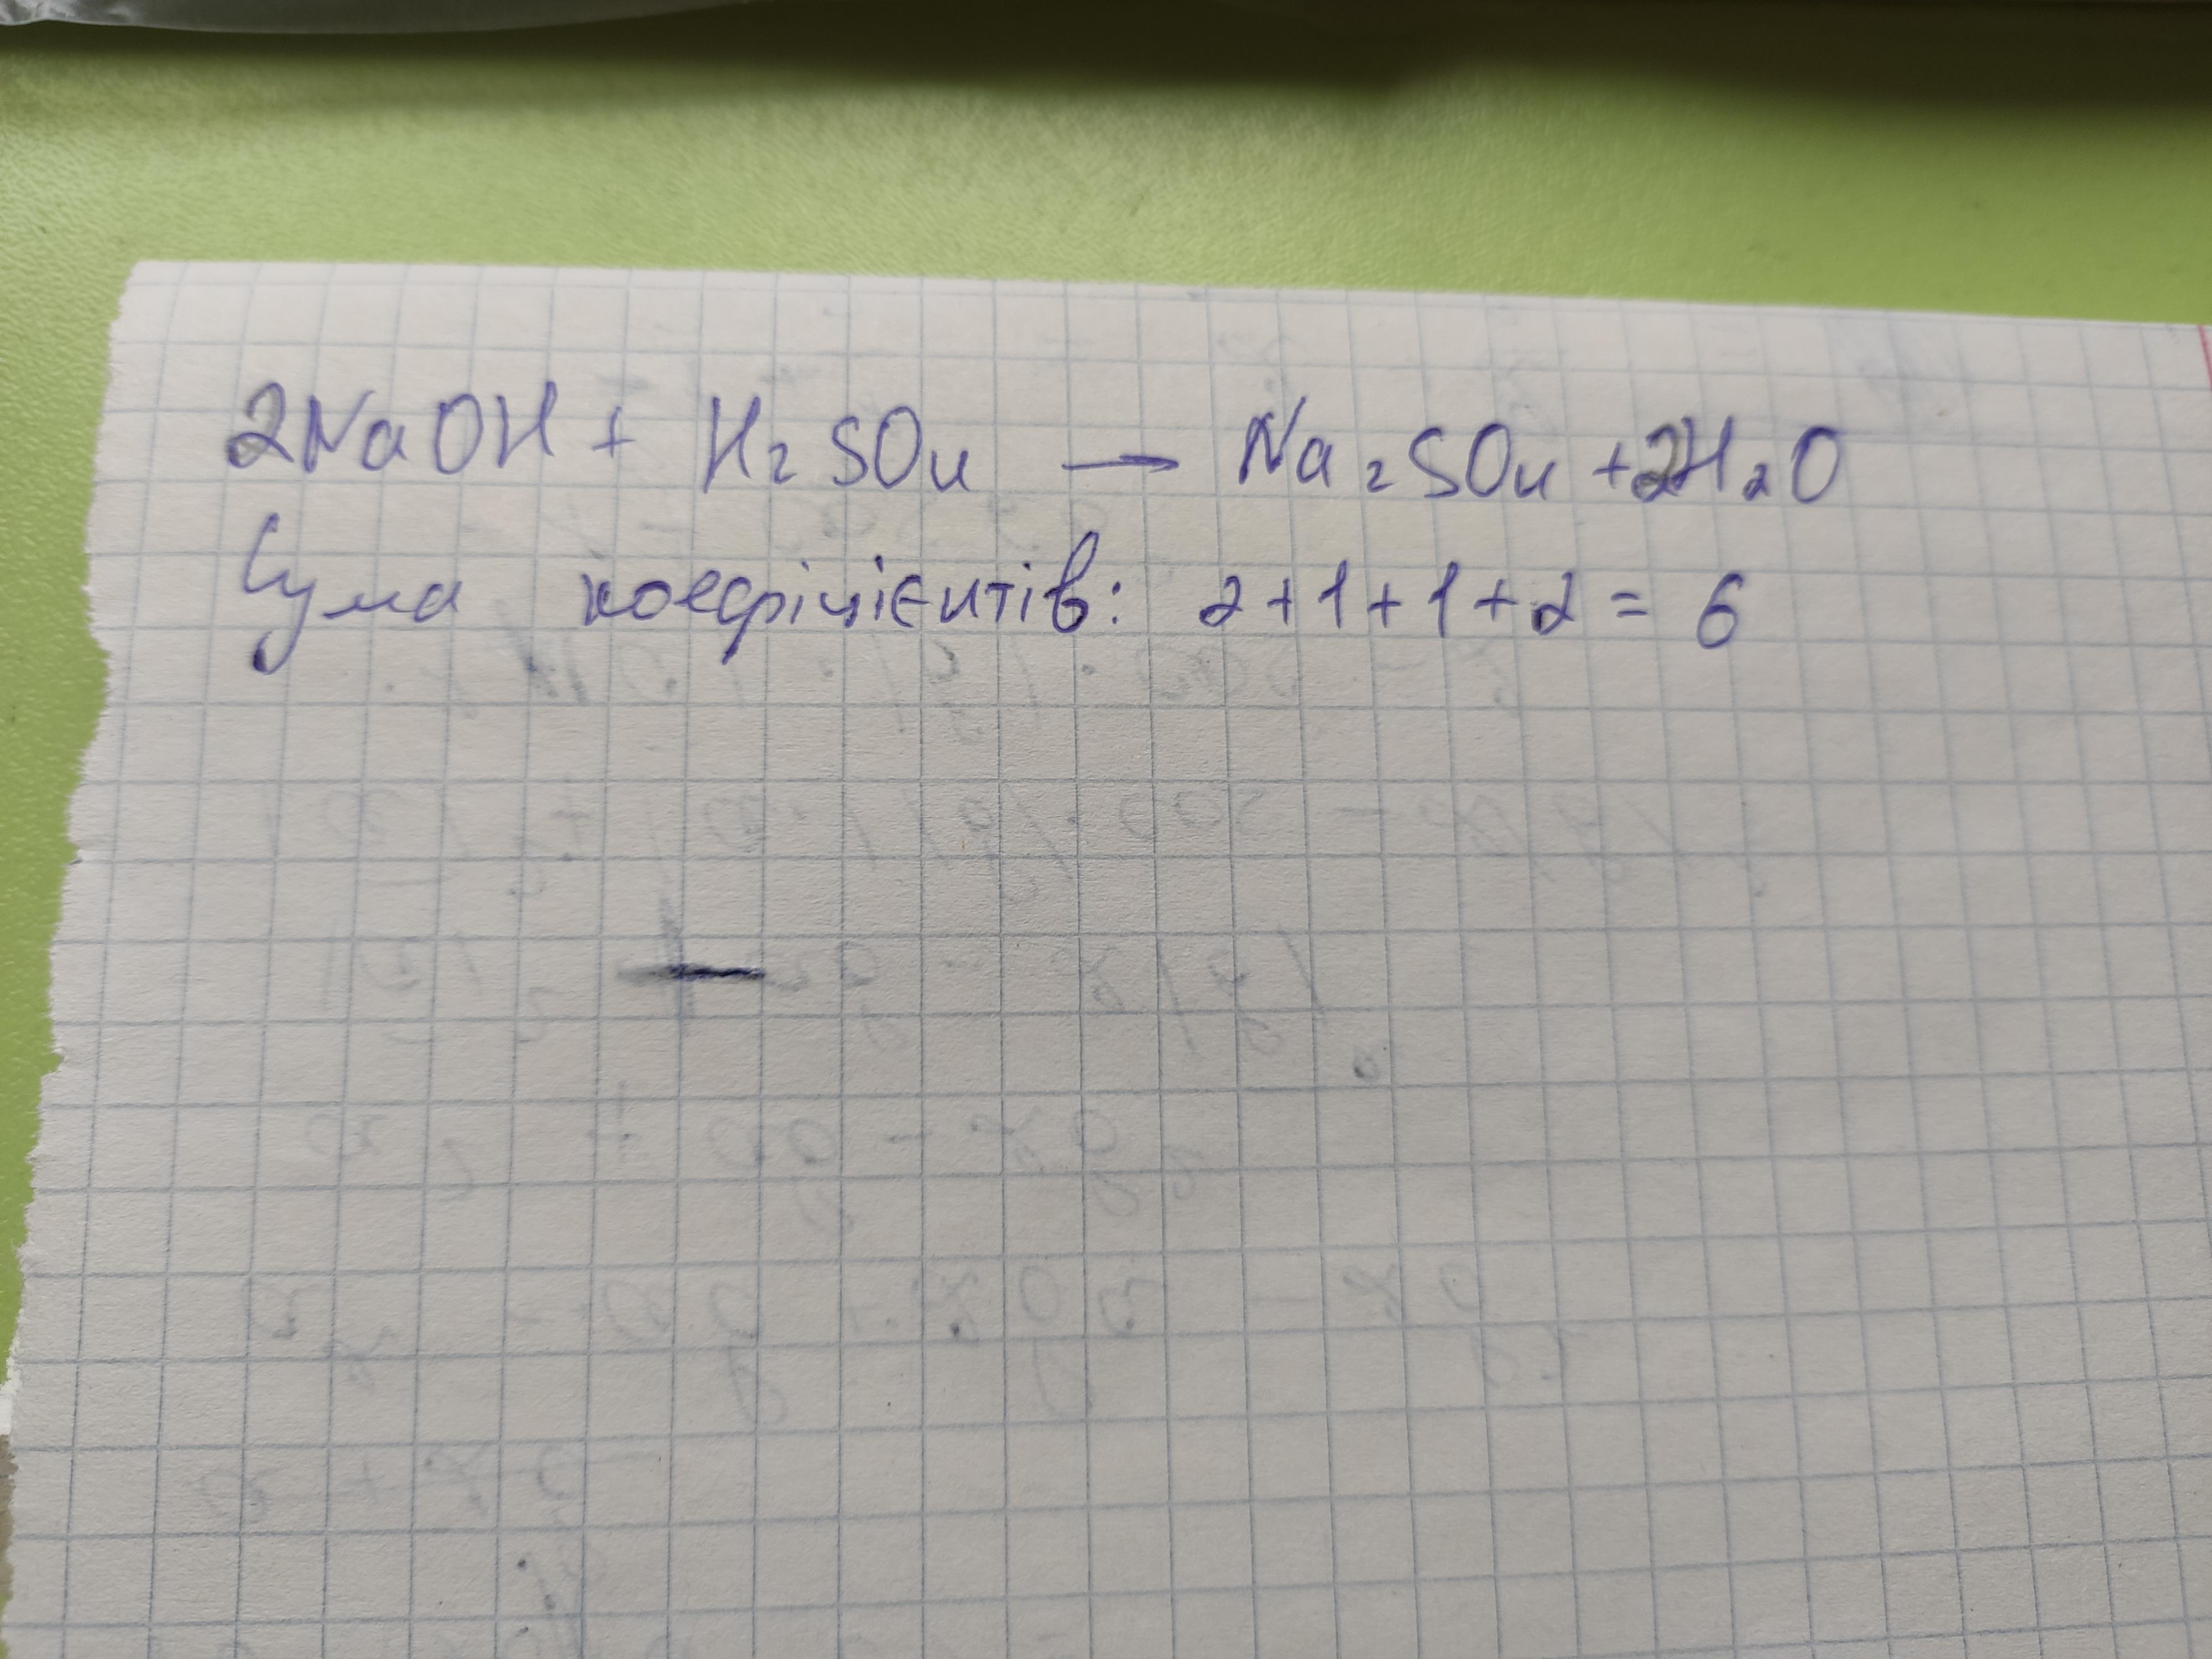 2NaOH + H₂SO₄ — Na₂SO₄ + 2H₂O
Сума коефіцієнтів: 2+1+1+2 = 6